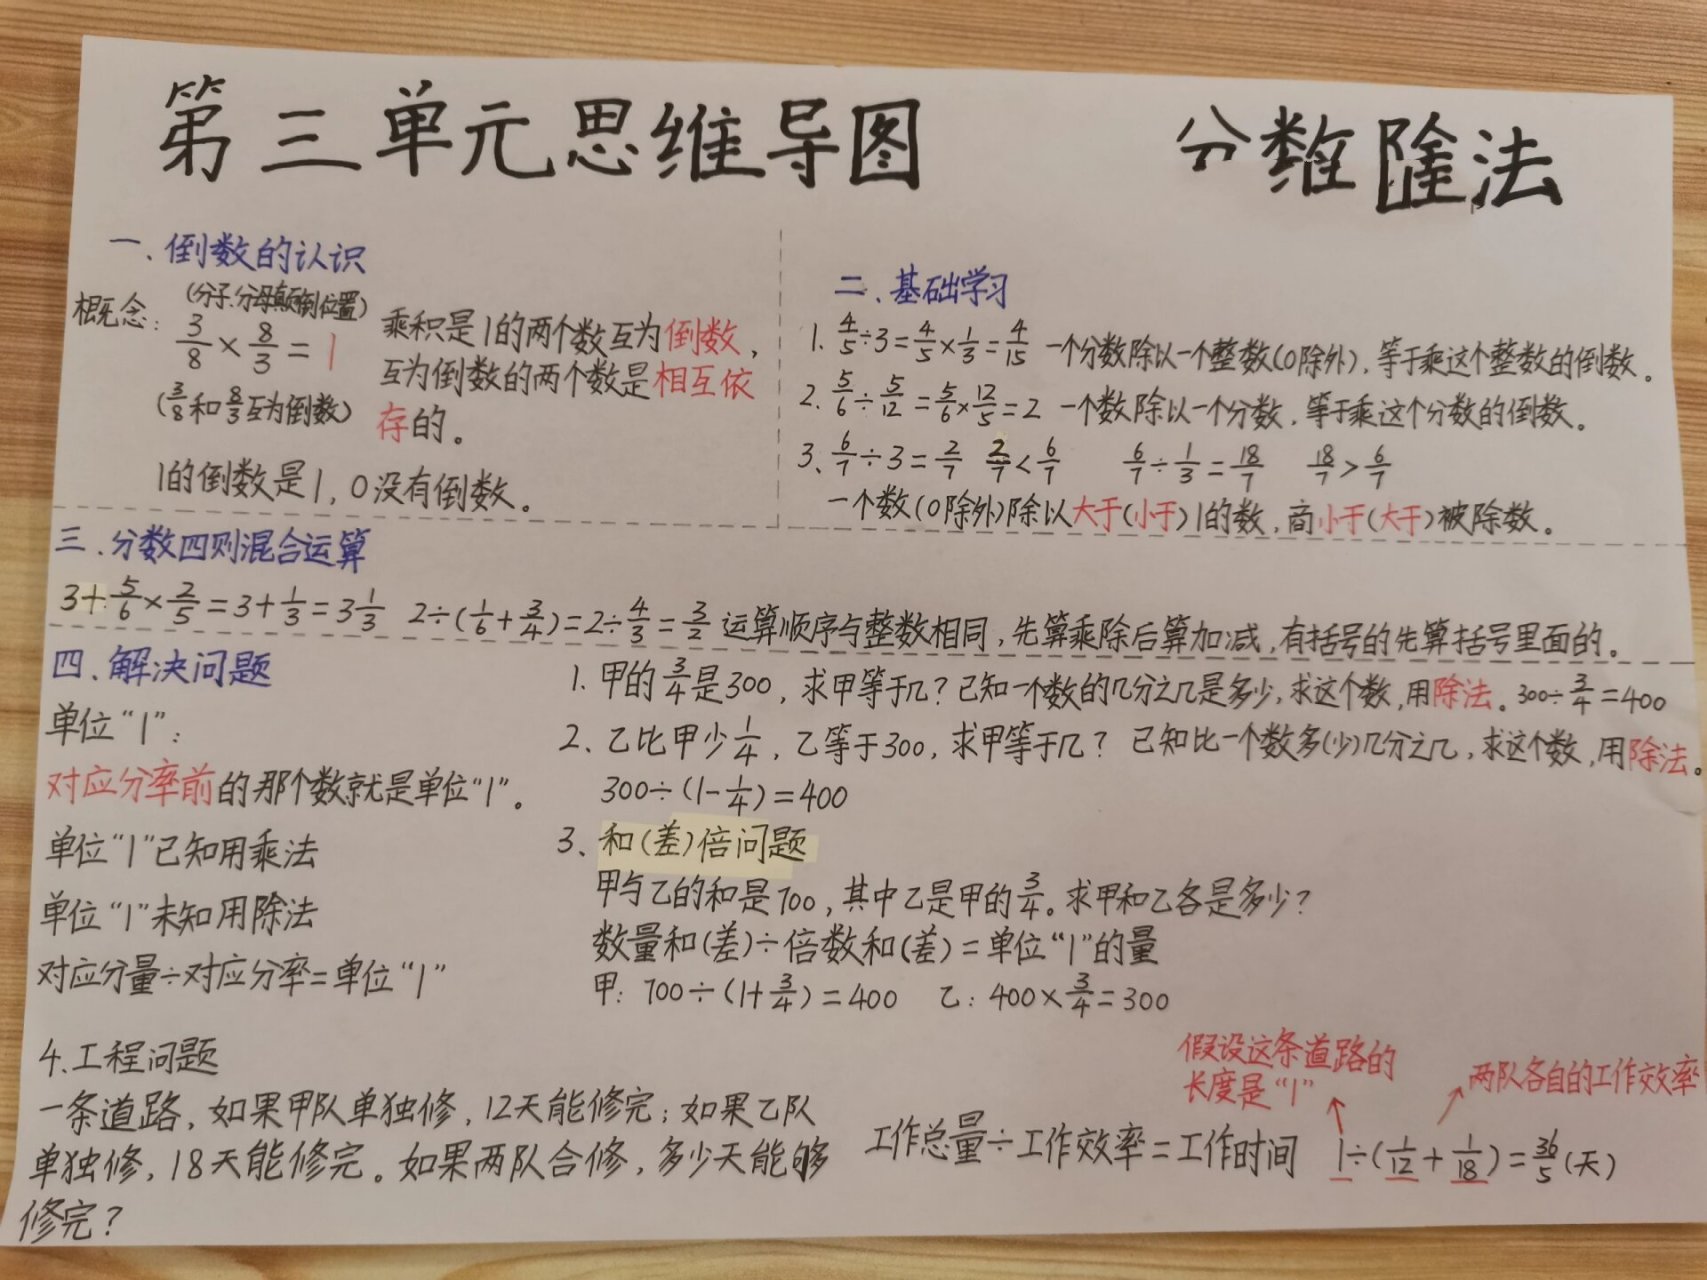 第三单元思维导图 分数除法
一、倒数的认识
概念:
(分子.分母颠倒位置)
3/8 × 8/3 = 1
(3/8和8/3互为倒数)
乘积是1的两个数互为倒数,
互为倒数的两个数是相互依
存的。
1的倒数是1,0没有倒数。
二、基础学习
1. 4/5÷3=4/5×1/3=4/15 一个分数除以一个整数(0除外),等于乘这个整数的倒数。
2. 5/6÷5/12=5/6×12/5=2 一个数除以一个分数,等于乘这个分数的倒数。
3、6/7÷3=2/7 2/7<6/7 6/7÷1/3=18/7 18/7>6/7
一个数(0除外)除以大于(小于)1的数,商小于(大于)被除数。
三、分数四则混合运算
3+5/6×2/5=3+1/3=3 1/3 2÷(1/6+3/4)=2÷4/3=3/2 运算顺序与整数相同,先算乘除后算加减,有括号的先算括号里面的。
四、解决问题
单位“1”:
对应分率前的那个数就是单位“1”。
单位“1”已知用乘法
单位“1”未知用除法
对应分量÷对应分率=单位“1”
1. 甲的3/4是300,求甲等于几?已知一个数的几分之几是多少,求这个数,用除法。300÷3/4=400
2、乙比甲少1/4,乙等于300,求甲等于几? 已知比一个数多(少)几分之几,求这个数,用除法。
300÷(1-1/4)=400
3、和(差)倍问题
甲与乙的和是700,其中乙是甲的3/4。求甲和乙各是多少?
数量和(差)÷倍数和(差)=单位“1”的量
甲:700÷(1+3/4)=400 乙:400×3/4=300
4.工程问题
一条道路,如果甲队单独修,12天能修完;如果乙队
单独修,18天能修完。如果两队合修,多少天能够
修完?
假设这条道路的
长度是“1”
两队各自的工作效率
工作总量÷工作效率=工作时间 1÷(1/12+1/18)=36/5(天)